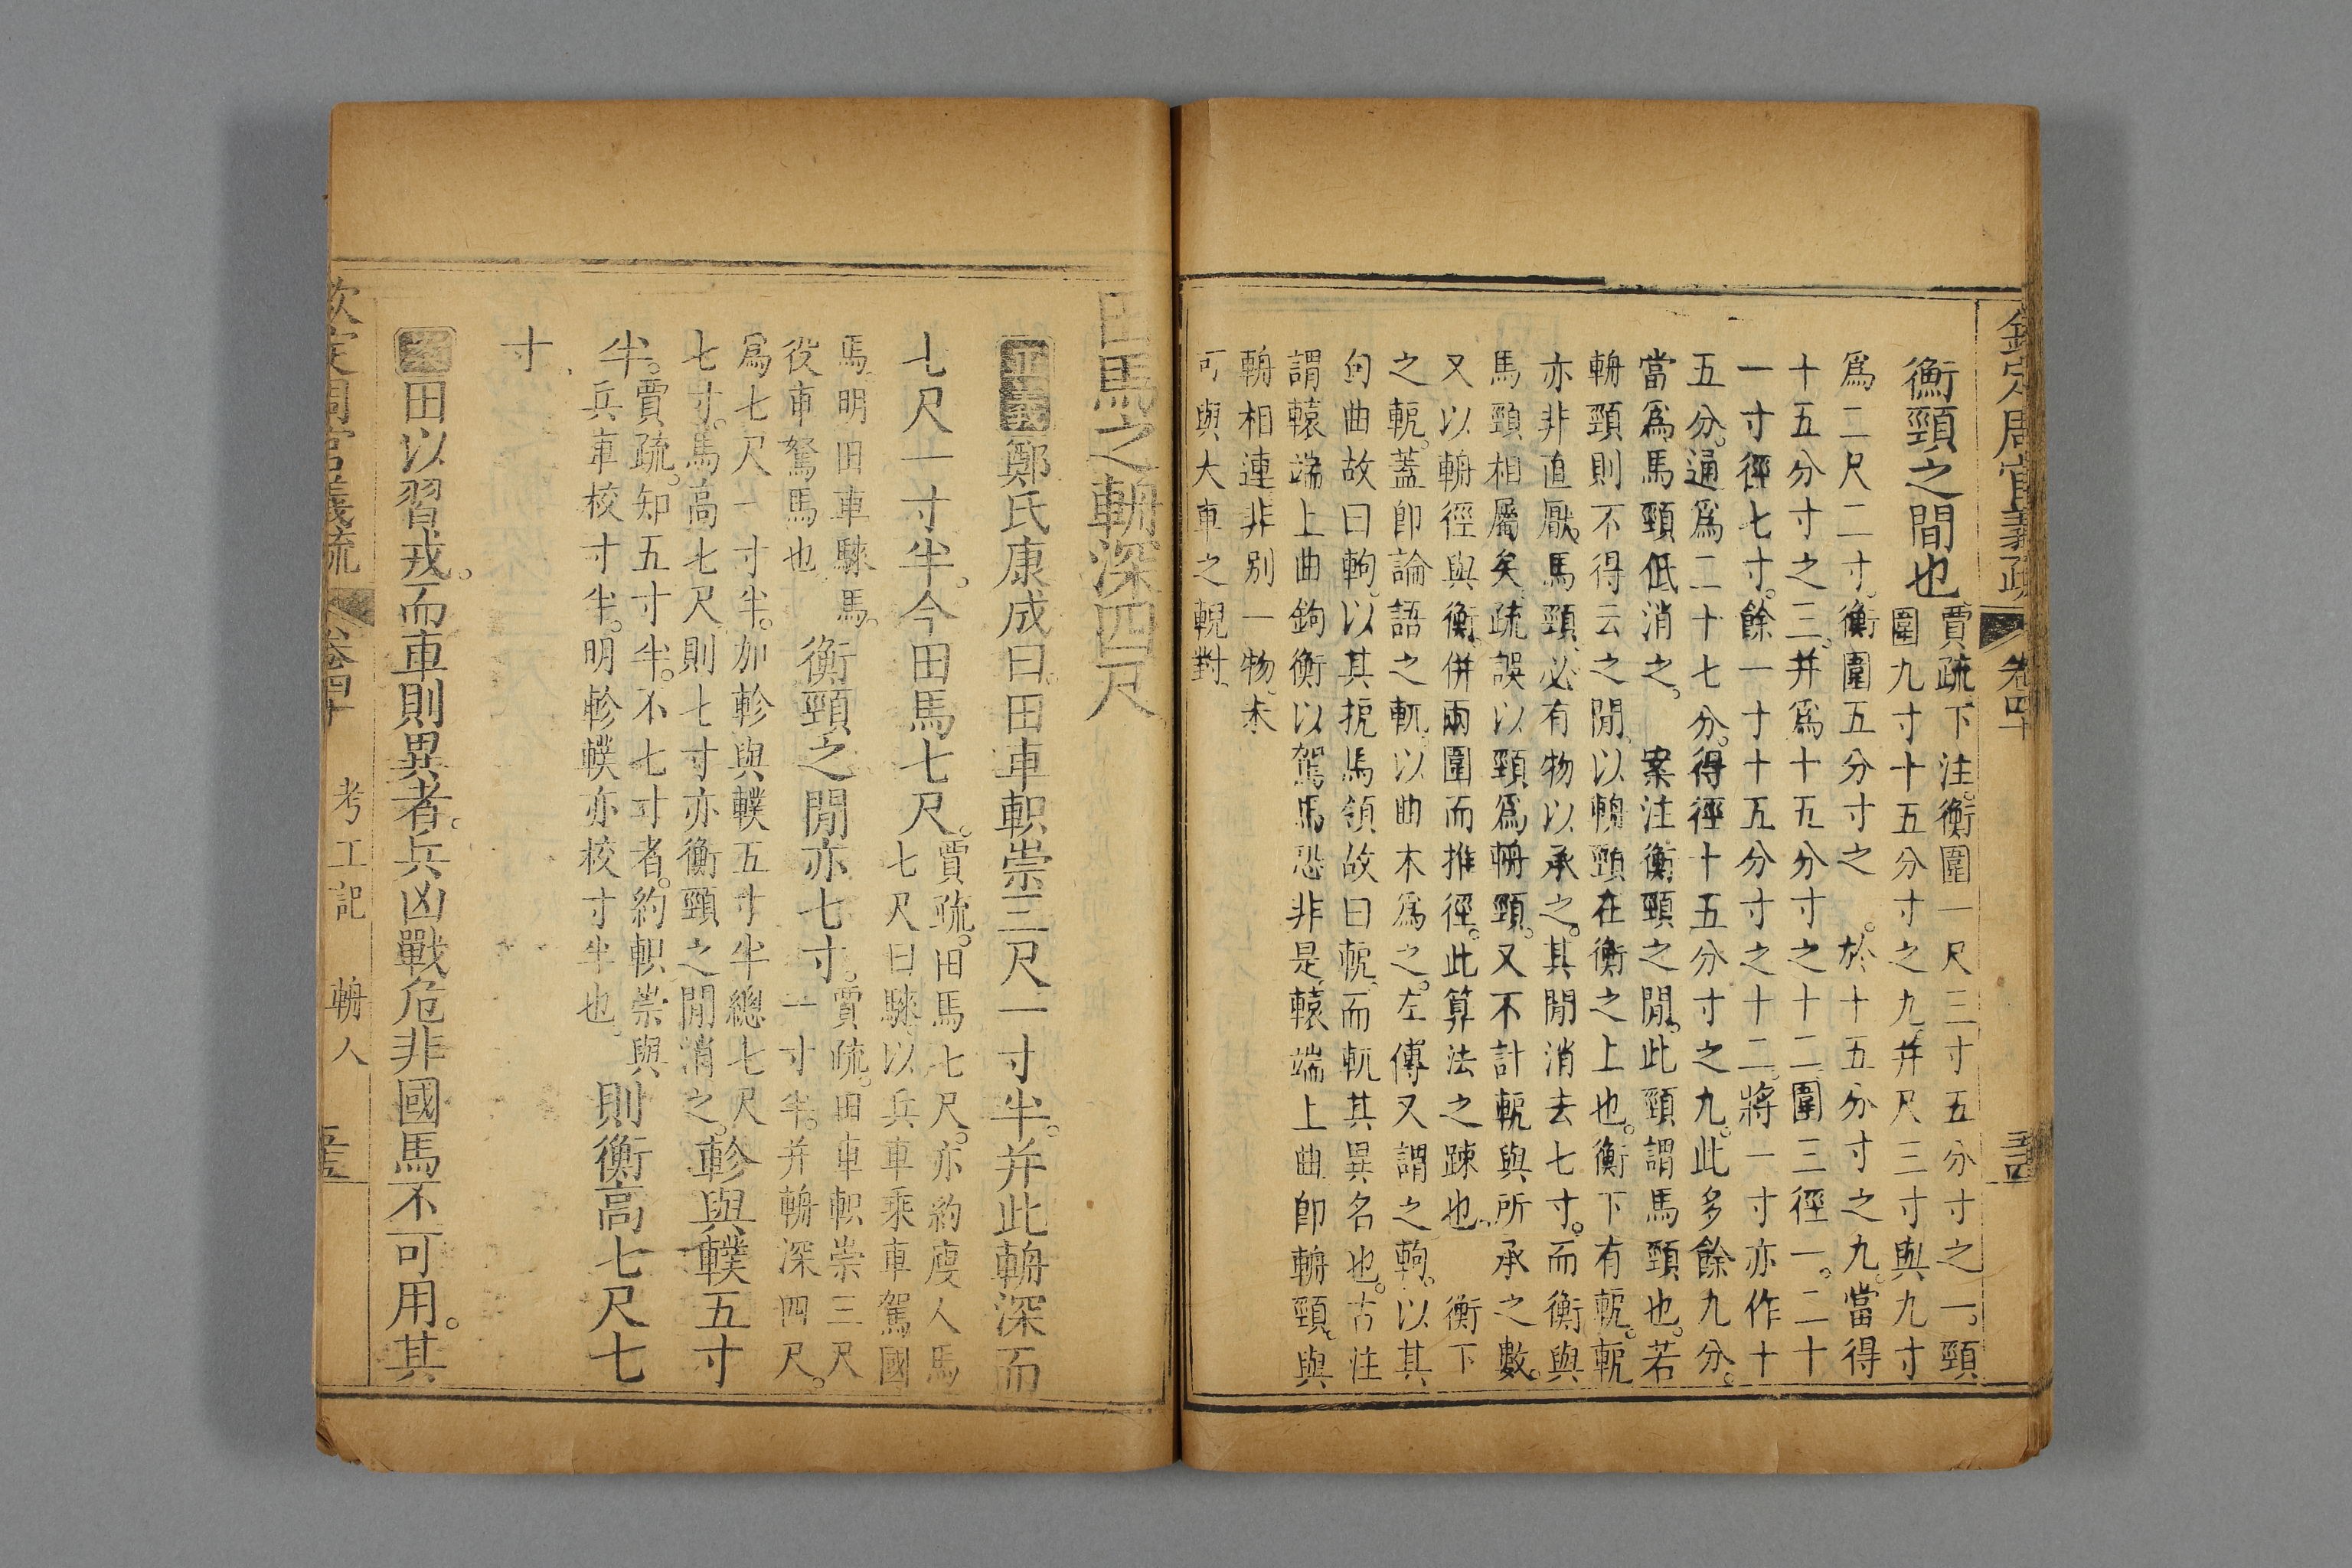 欽定周官義疏 卷四十
衡頸之間也
賈疏下注衡圍一尺三寸五分寸之一頸
圍九寸十五分寸之九并尺三寸與九寸
爲二尺二寸衡圍五分寸之 於十五分寸之九當得
十五分寸之三并爲十五分寸之十二圍三徑一二十
一寸徑七寸餘一寸十五分寸之十二將一寸亦作十
五分通爲二十七分得徑十五分寸之九此多餘九分
當爲馬頸低消之 案注衡頸之間此頸謂馬頸也若
輈頸則不得云之間以輈頸在衡之上也衡下有軶軶
亦非直厭馬頸必有物以承之其間消去七寸而衡與
馬頸相屬矣疏誤以頸爲輈頸又不計軶與所承之數
又以輈徑與衡併兩圍而推徑此算法之踈也 衡下
之軶蓋卽論語之軏以曲木爲之左傳又謂之軥以其
句曲故曰軥以其扼馬領故曰軶而軏其異名也古注
謂轅端上曲鉤衡以駕馬恐非是轅端上曲卽輈頸與
輈相連非別一物未
可與大車之輗對
田馬之輈深四尺
正義鄭氏康成曰田車軹崇三尺一寸半并此輈深而
七尺一寸半今田馬七尺
賈疏田馬七尺亦約廋人馬
七尺曰騋以兵車乘車駕國
馬明田車騋馬
役車駑馬也
衡頸之間亦七寸
賈疏田車軹崇三尺
一寸半并輈深四尺
爲七尺一寸半加軫與轐五寸半總七尺
七寸馬高七尺則七寸亦衡頸之間消之
軫與轐五寸
半
賈疏知五寸半不七寸者約軹崇與
兵車校寸半明軫轐亦校寸半也
則衡高七尺七
寸
田以習戎而車則異者兵凶戰危非國馬不可用其
欽定周官義疏 卷四十 考工記 輈人